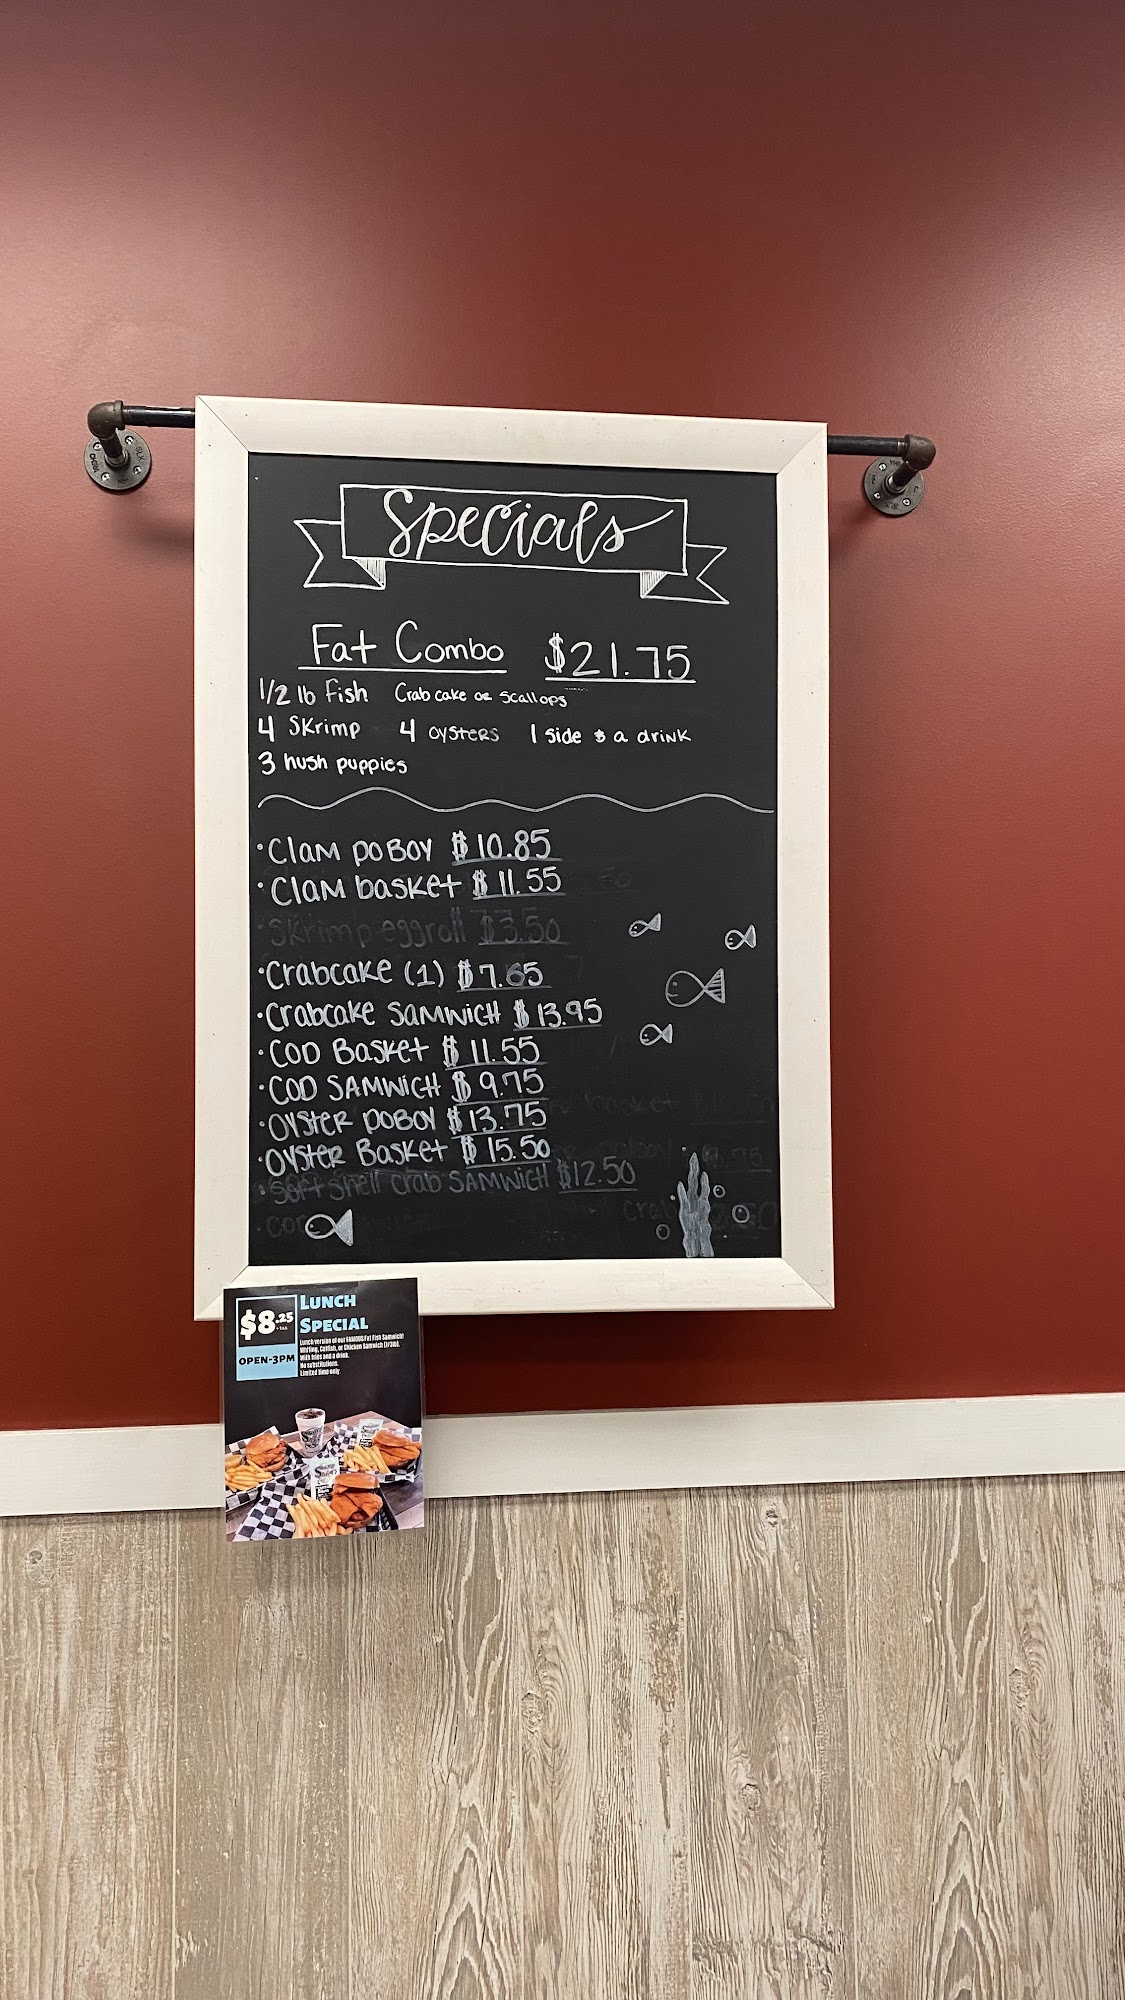 Specials
Fat Combo $21.75
1/2 lb Fish Crab cake or scallops
4 Skrimp 4 oysters 1 side & a drink
3 hush puppies
•Clam poboy $10.85
•Clam basket $11.55
•Skrimp eggroll $3.50
•Crabcake (1) $7.65
•Crabcake samwich $13.95
•Cod Basket $11.55
•Cod samwich $9.75
•Oyster poboy $13.75
•Oyster Basket $15.50
•Soft shell crab samwich $12.50
$8.25
+ tax
OPEN-3PM
LUNCH
SPECIAL
Lunch version of our FAMOUS Fat Fish Samwich!
Whiting, Catfish, or Chicken Samwich (1/3lb).
With fries and a drink.
No substitutions.
Limited time only.